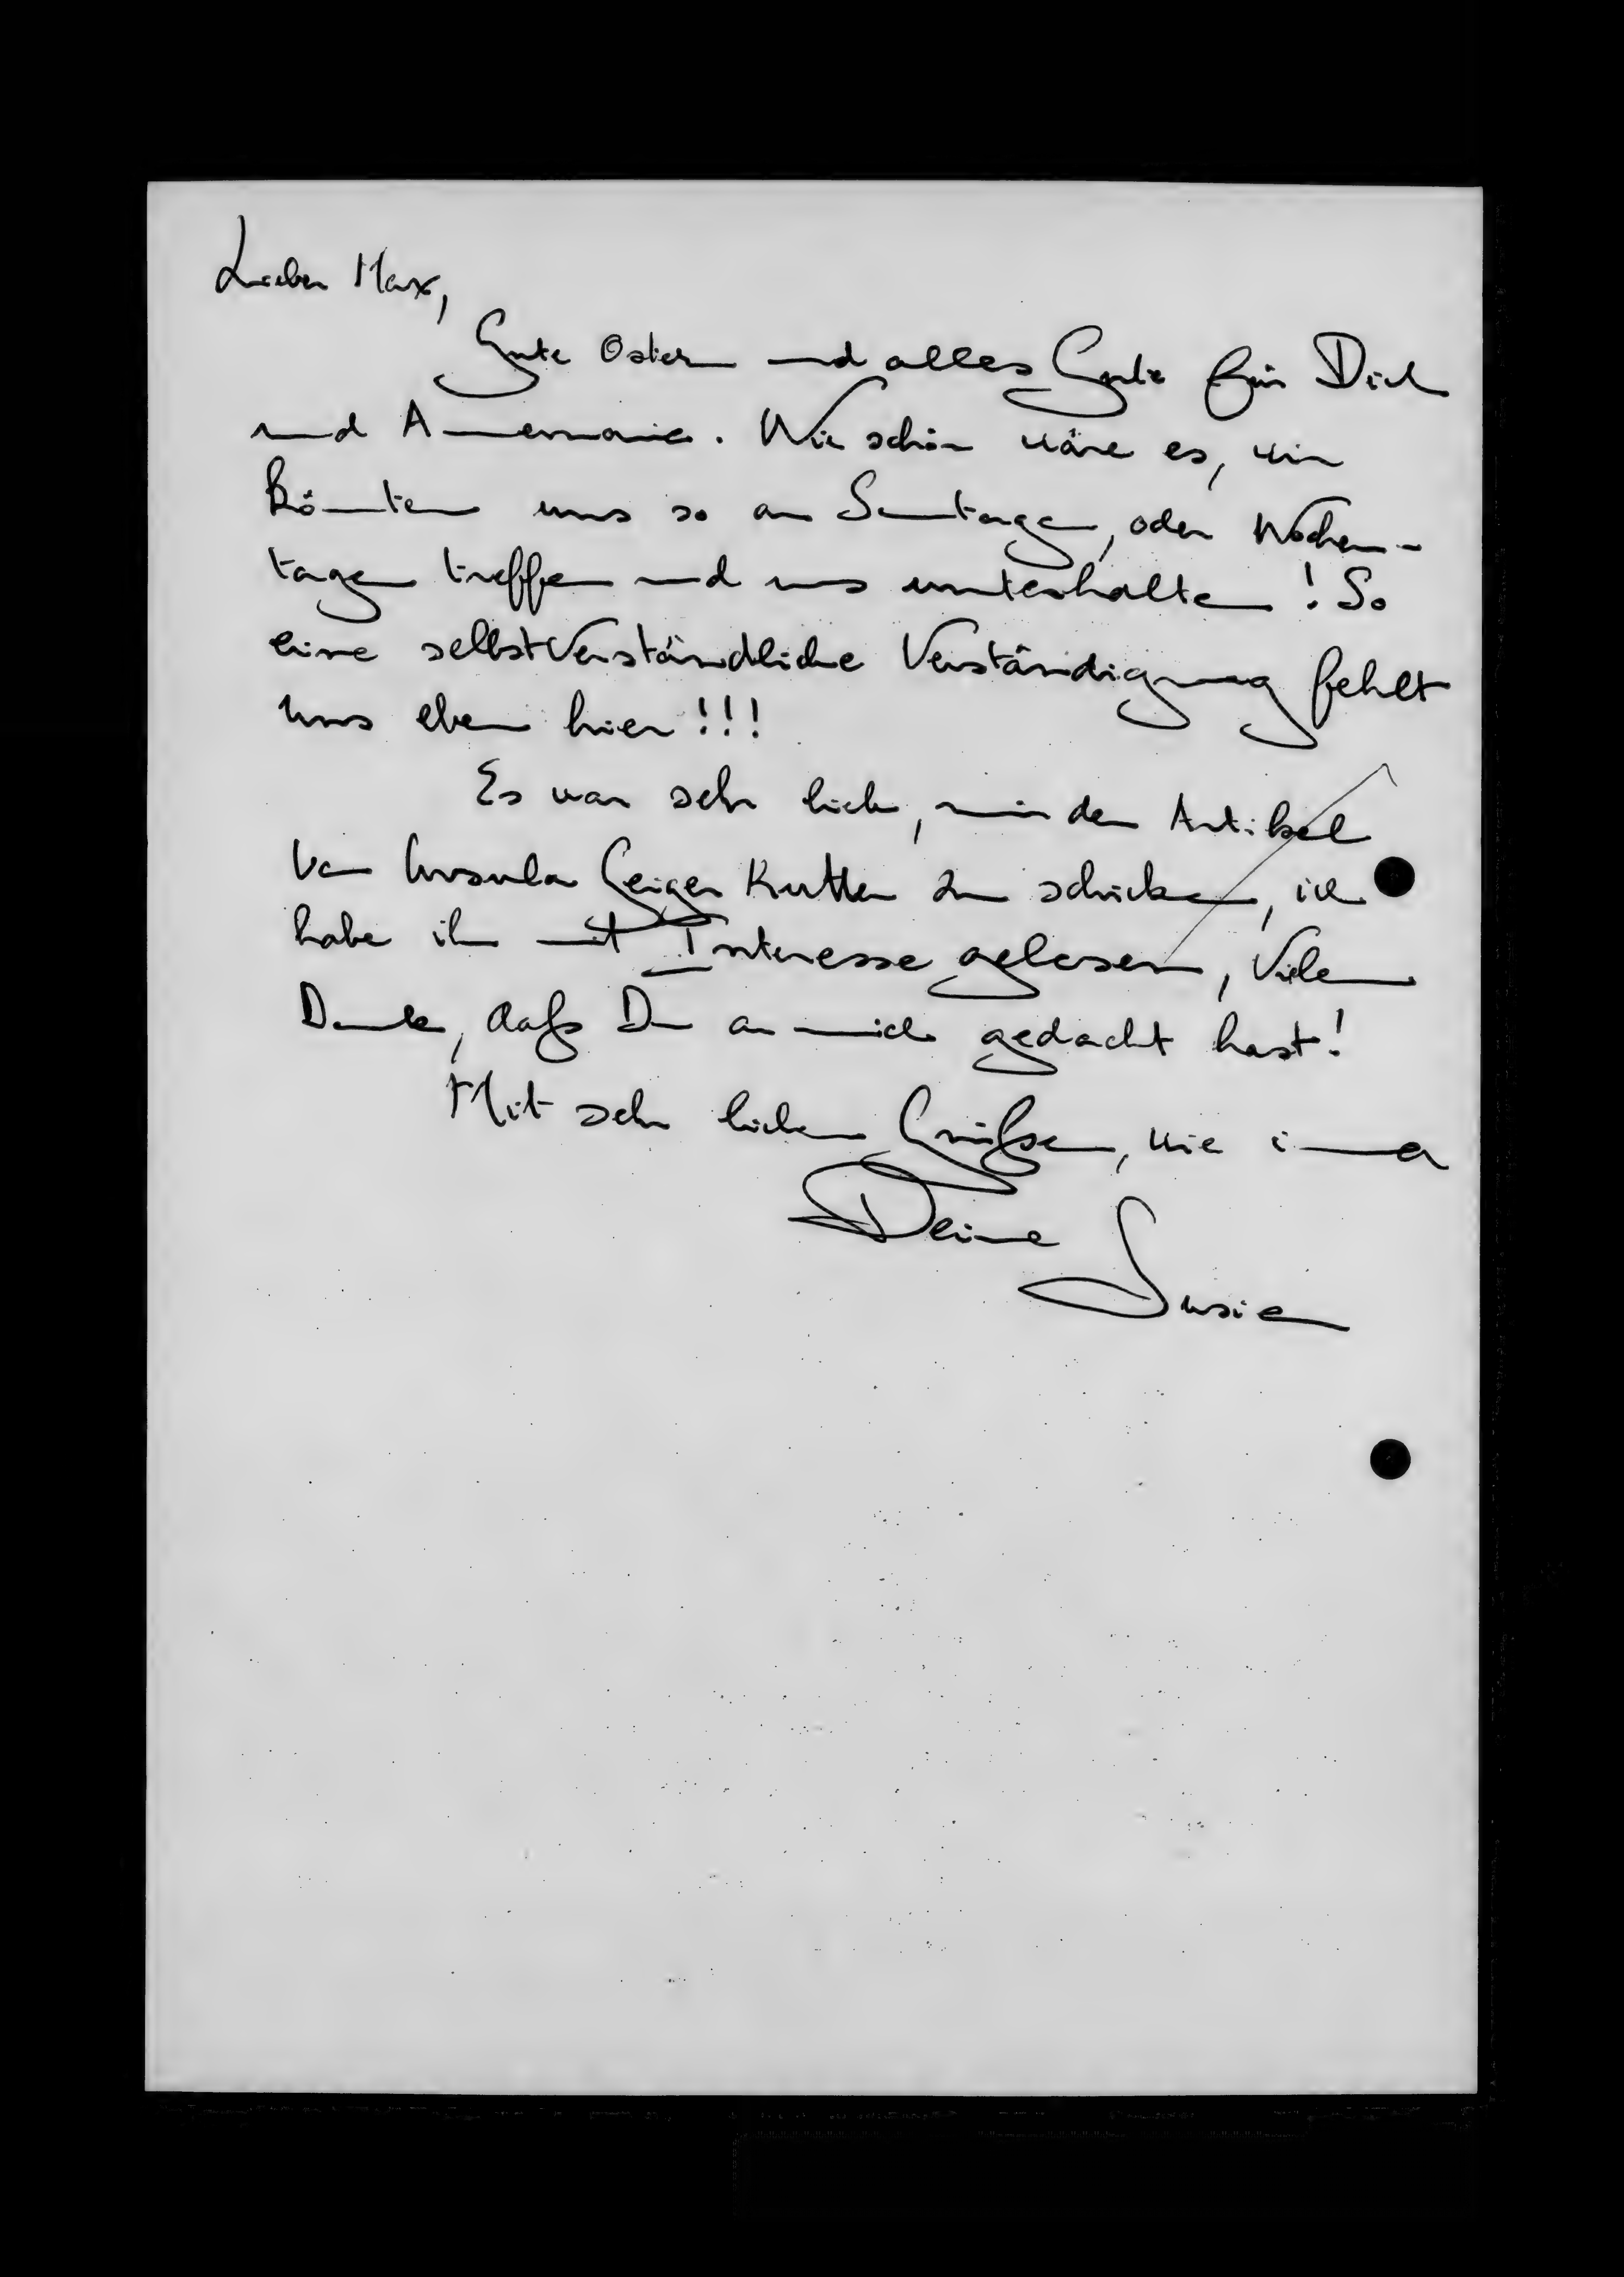 Lieber Max,
Gute Ostern und alles Gute für Dich
und Annemarie. Wie schön wäre es, wir
könnten uns so an Sonntagen, oder Wochen-
tagen treffen und uns unterhalten! So
eine selbstverständliche Verständigung fehlt
uns eben hier!!!
Es war sehr lieb, mir den Artikel
von Ursula Geiger zu schicken, ich
habe ihn mit Interesse gelesen, Vielen
Dank, daß Du an mich gedacht hast!
Mit sehr lieben Grüßen, wie immer
Deine
Susie